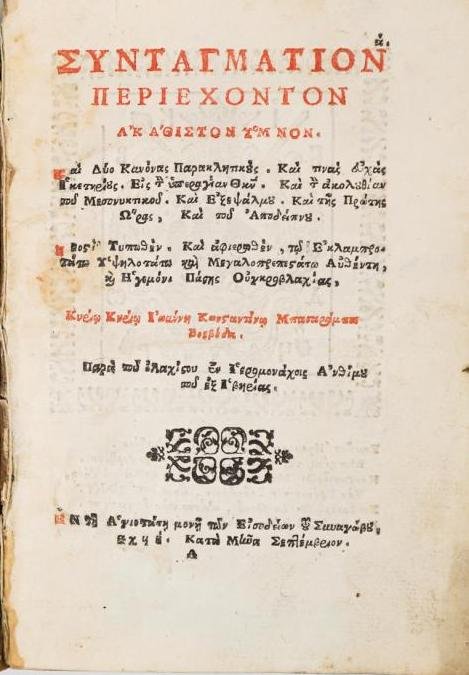 ά.
ΣΥΝΤΑΓΜΑΤΙΟΝ
ΠΕΡΙΕΧΟΝΤΟΝ
ΑΚΑΘΙΣΤΟΝ ὝΜΝΟΝ.
Καὶ Δύο Κανόνας Παρακλητικούς. Καὶ τινὰς ἐυχὰς
Ἱκετηρίους. Εἰς τ̀ ὑπεραγίαν Θκον. Καὶ τ̀ ἀκολυθίαν
τοῦ Μεσονυκτικοῦ. Καὶ Ἑξεψάλμου. Καὶ τῆς Πρώτης
Ὥρας, Καὶ τοῦ Ἀποδείπνου.
Τυπωθὲν. Καὶ ἀφιερωθὲν, τῷ Ἐκλαμπρο-
τάτῳ Ὑψηλοτάτῳ καὶ Μεγαλοπρεπεστάτῳ Αὐθέντῃ,
καὶ Ἡγεμόνι Πάσης Οὐγκροβλαχίας,
Κυρίῳ Κυρίῳ Ἰωάννῃ Κωνσταντίνῳ Μπασαράμπα
Βοεβόδα.
Παρὰ τοῦ ἐλαχίστου ἐν Ἱερομονάχοις Ἀνθίμου
τοῦ ἐξ Ἰβηρίας.
Ἐν τῇ Ἁγιοτάτῃ μονῇ τῶν Εἰσοδείων τοῦ Συναγώβου,
Κατὰ Μῆνα Σεπτέμβριον.
Α